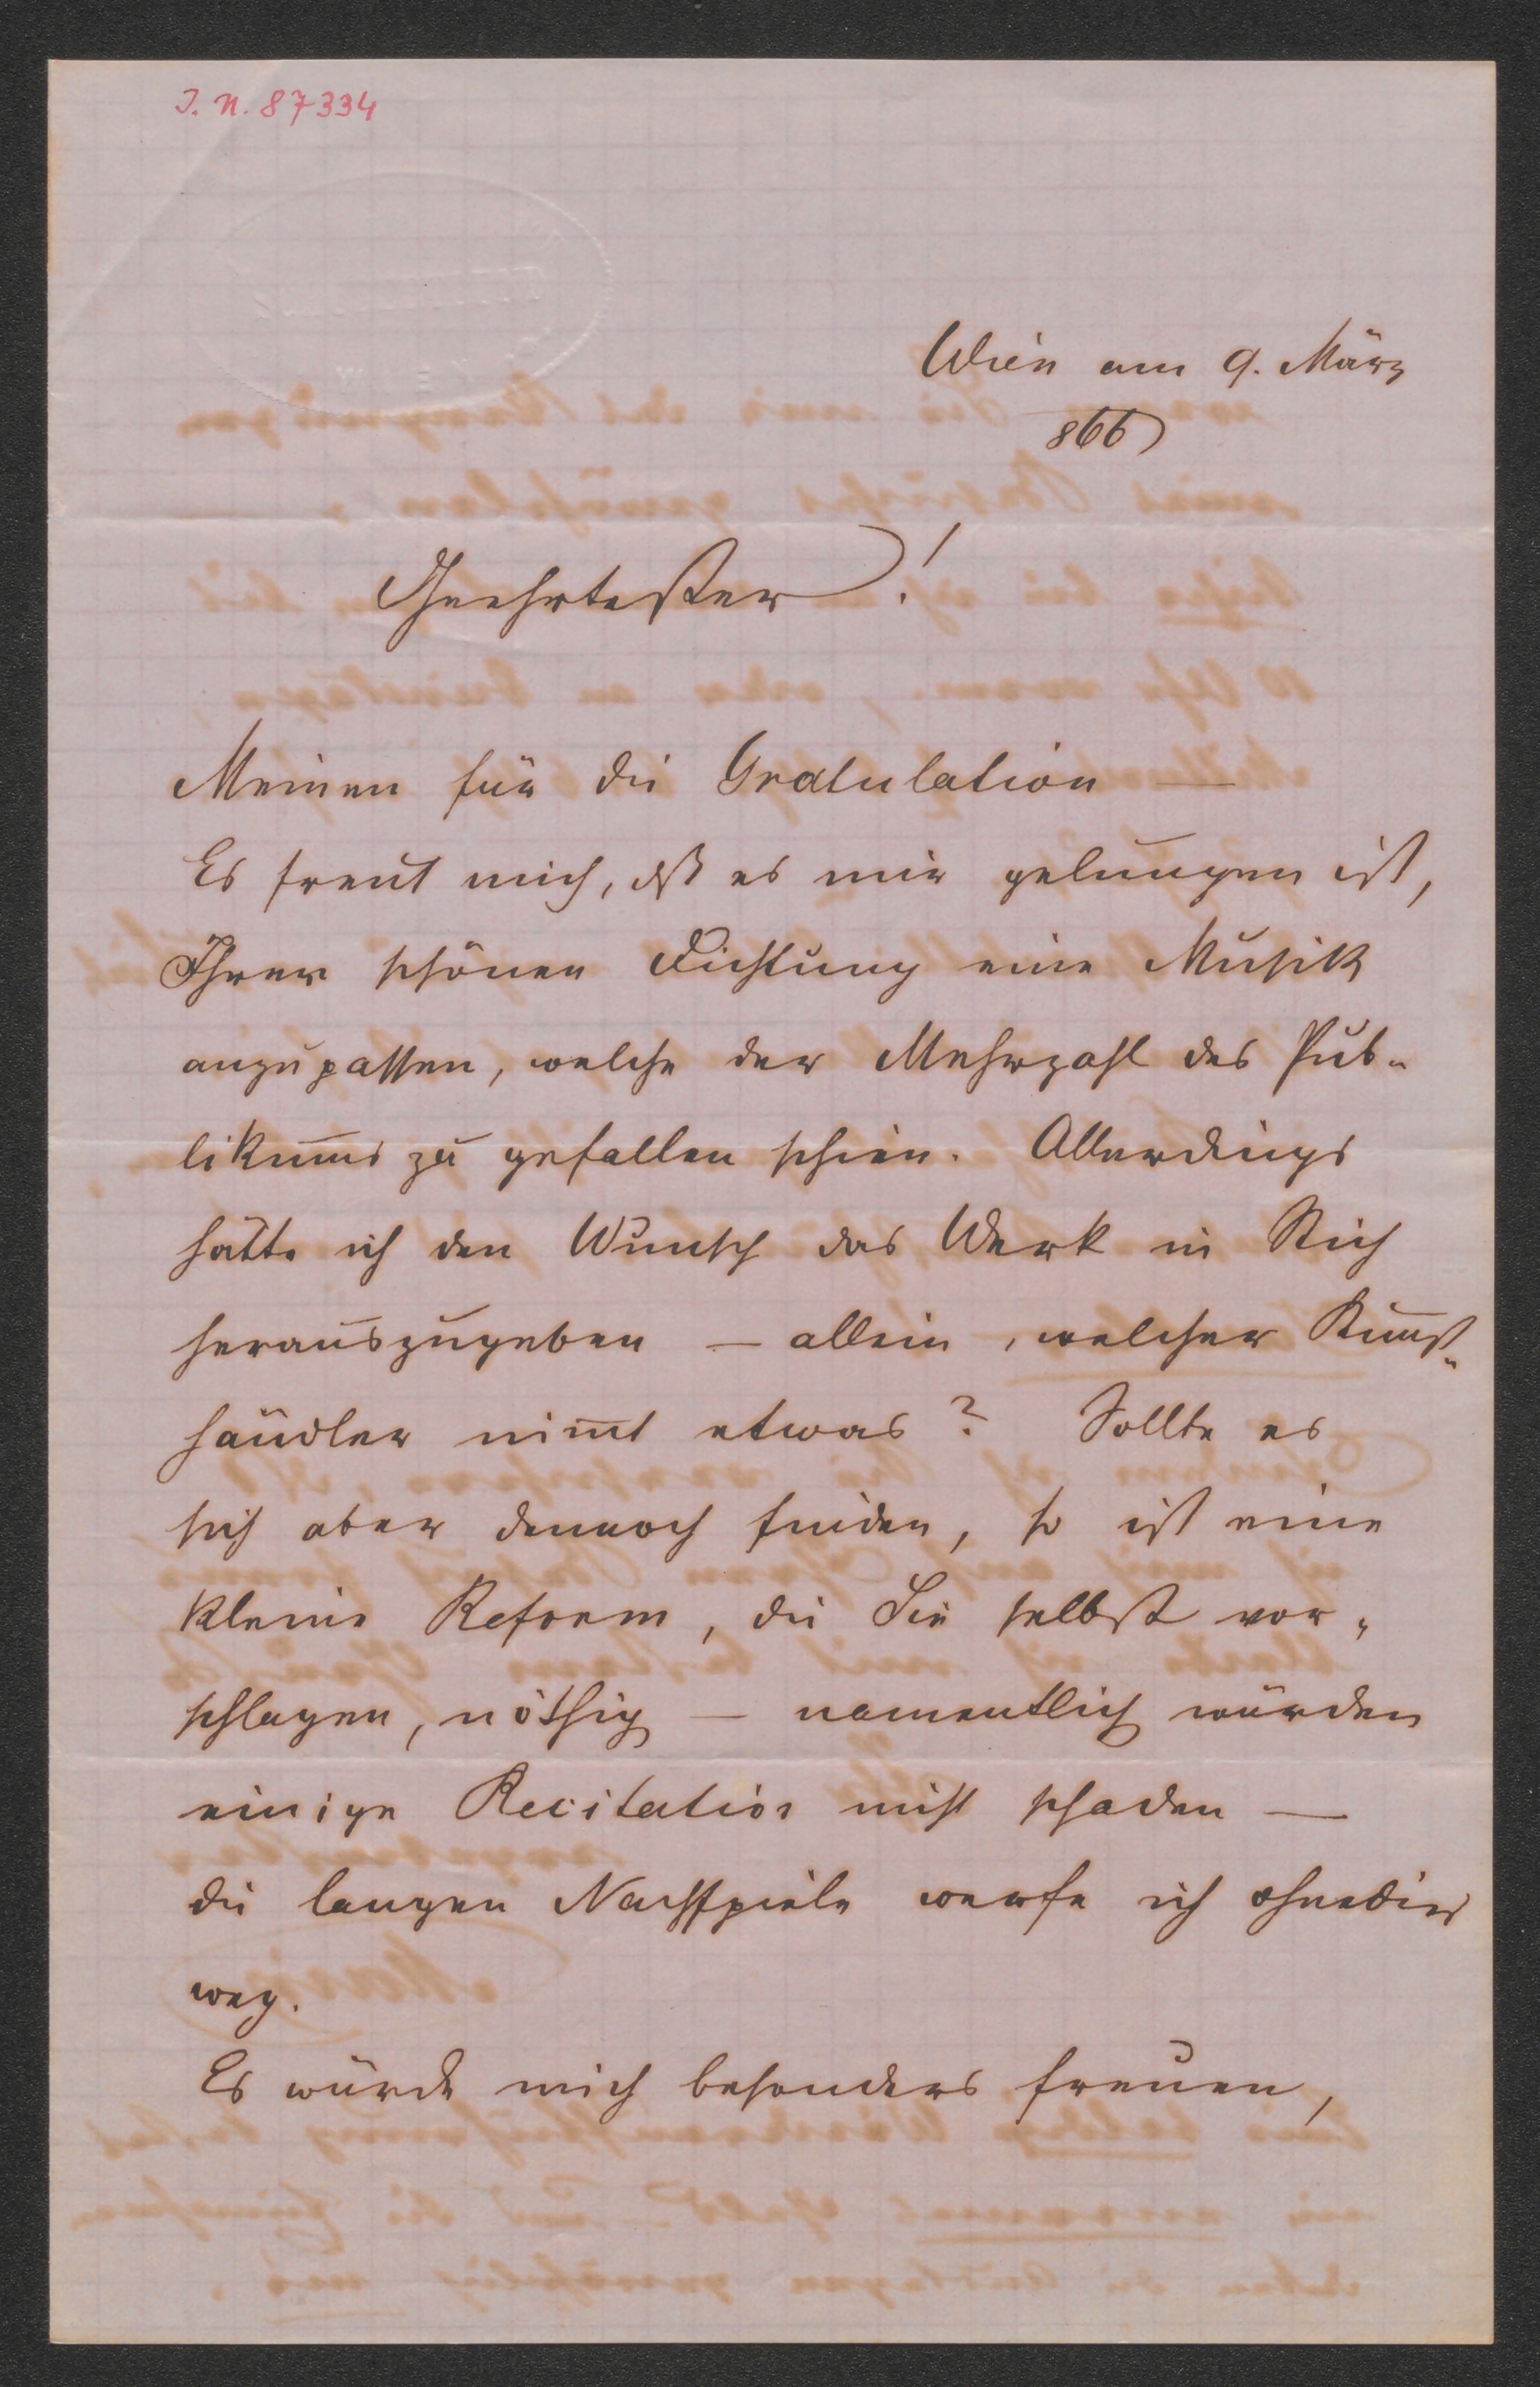 J. N. 87334
Wien am 9. März
866
Geehrtester!
Meinen für die Gratulation —
Es freut mich, dß es mir gelungen ist,
Ihrer schönen Dichtung eine Musik
anzupassen, welche der Mehrzahl des Pub-
likums zu gefallen schien. Allerdings
hätte ich den Wunsch das Werk in Stich
herauszugeben — allein, welcher Kunst-
händler nim̅t etwas? Sollte es
sich aber dennoch finden, so ist eine
kleine Reform, die Sie selbst vor-
schlagen, nöthig — namentlich würden
einige Recitative nicht schaden —
die langen Nachspiele werfe ich ohnedies
weg.
Es würde mich besonders freuen,